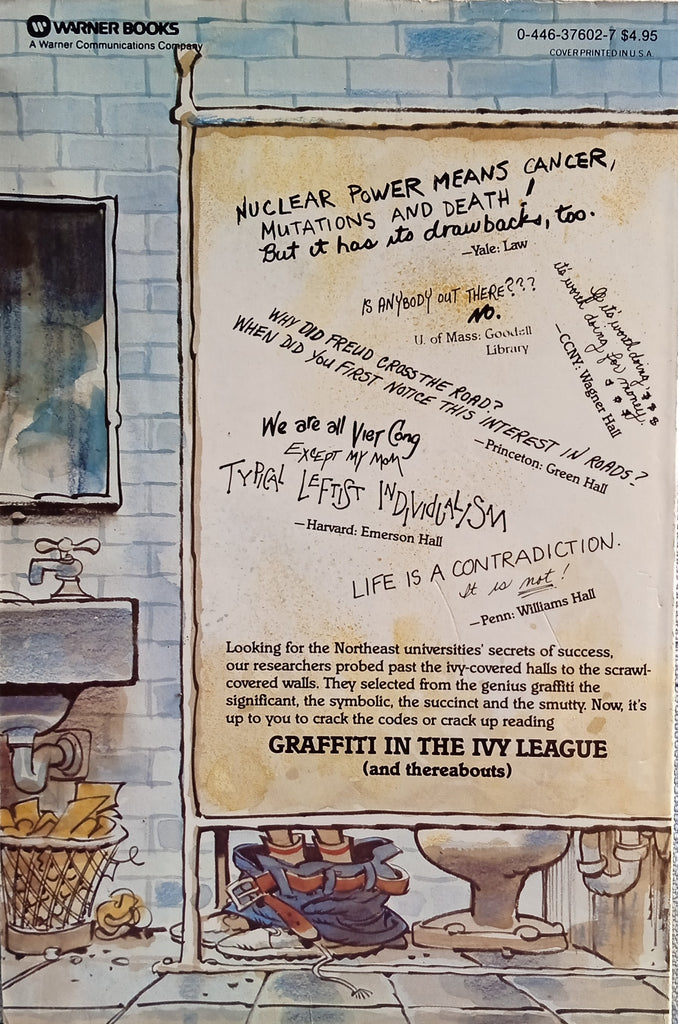 WARNER BOOKS
A Warner Communications Company
0-446-37602-7 $4.95
COVER PRINTED IN U.S.A.
NUCLEAR POWER MEANS CANCER,
MUTATIONS AND DEATH!
But it has its drawbacks, too.
—Yale: Law
IS ANYBODY OUT THERE???
NO.
U. of Mass: Goodell
Library
If it's worth doing,
it's worth doing for money.
$ $ $ $ $
—CCNY: Wagner Hall
WHY DID FREUD CROSS THE ROAD?
WHEN DID YOU FIRST NOTICE THIS INTEREST IN ROADS?
—Princeton: Green Hall
We are all Viet Cong
EXCEPT MY MOM
TYPICAL LEFTIST INDIVIDUALISM
—Harvard: Emerson Hall
LIFE IS A CONTRADICTION.
It is not!
—Penn: Williams Hall
Looking for the Northeast universities' secrets of success,
our researchers probed past the ivy-covered halls to the scrawl-
covered walls. They selected from the genius graffiti the
significant, the symbolic, the succinct and the smutty. Now, it's
up to you to crack the codes or crack up reading
GRAFFITI IN THE IVY LEAGUE
(and thereabouts)